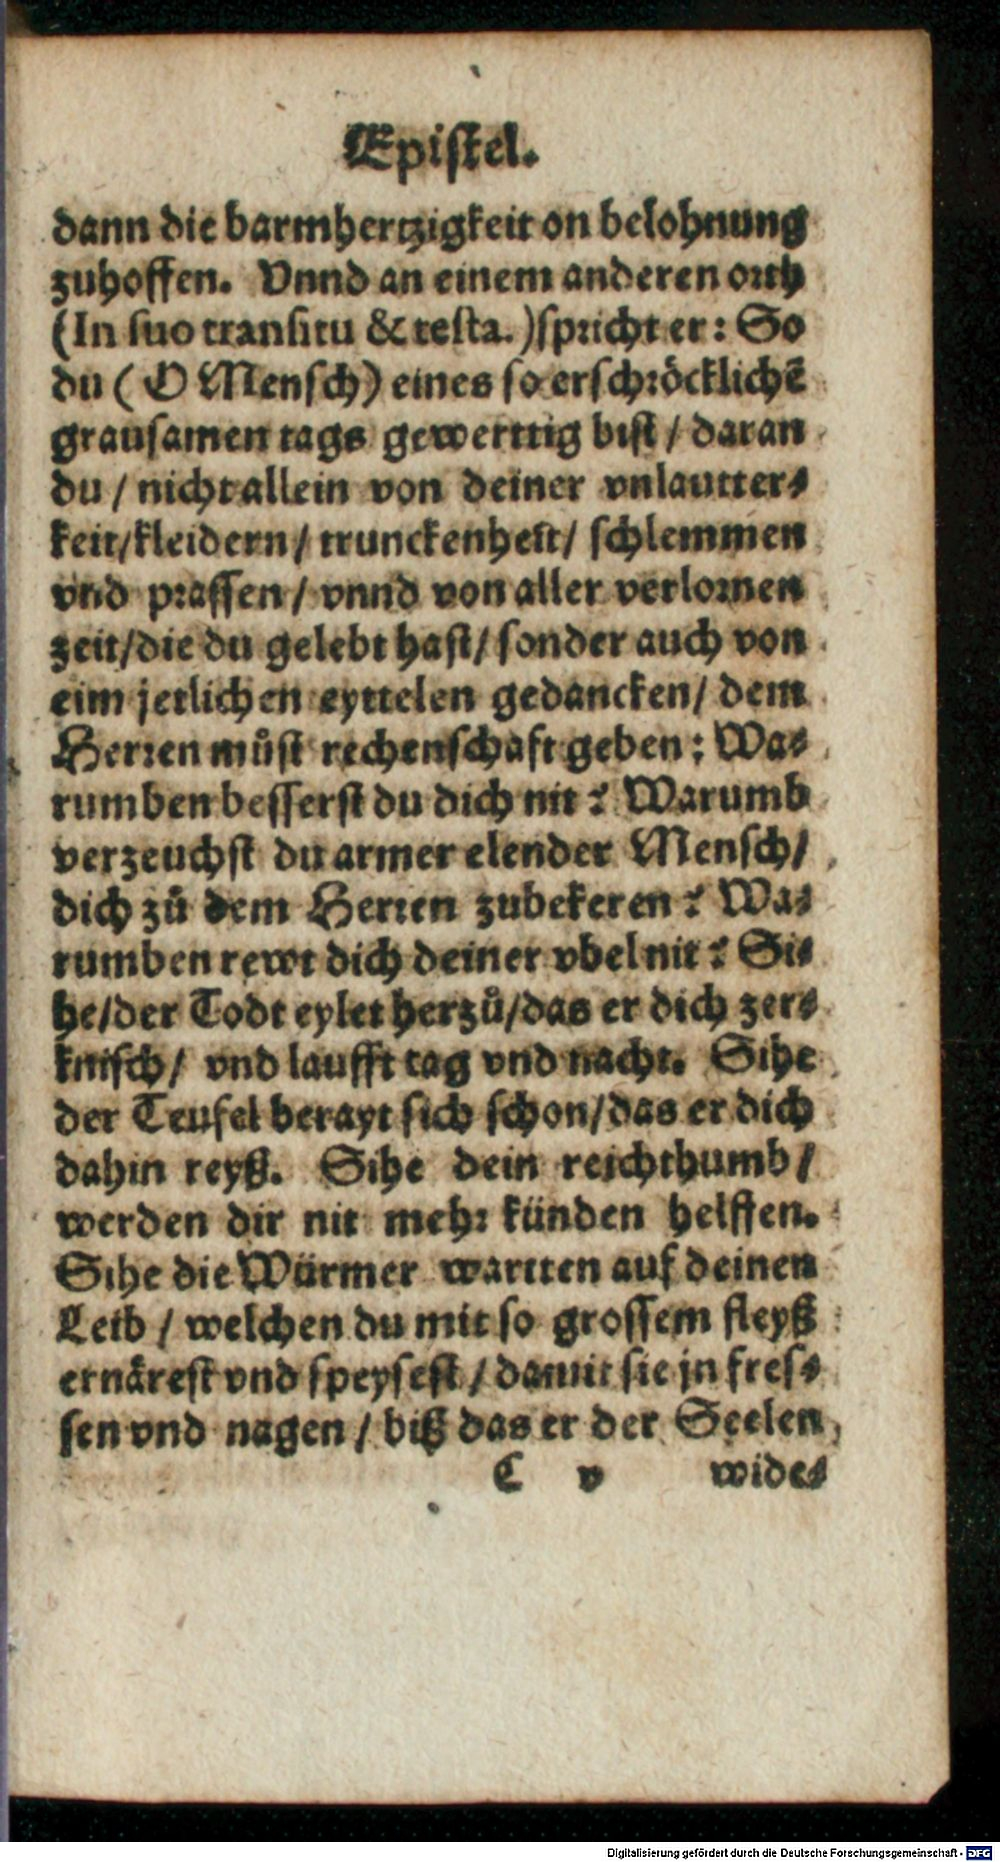 Epistel.
dann die barmhertzigkeit on belohnung
zuhoffen. Vnnd an einem anderen orth
(In suo transitu & testa.) spricht er: So
du (O Mensch) eines so erschröcklichẽ
grausamen tags gewerttig bist / daran
du / nicht allein von deiner vnlautter-
keit / kleidern / trunckenheit / schlemmen
vnd prassen / vnnd von aller verlornen
zeit / die du gelebt hast / sonder auch von
eim jetlichen eyttelen gedancken / dem
Herren můst rechenschaft geben: Wa-
rumben besserst du dich nit? Warumb
verzeuchst du armer elender Mensch /
dich zů dem Herren zubekeren? Wa-
rumben rewt dich deiner vbel nit? Si-
he / der Todt eylet herzů / das er dich zer-
knisch / vnd laufft tag vnd nacht. Sihe
der Teufel berayt sich schon / das er dich
dahin reyß. Sihe dein reichthumb /
werden dir nit mehr künden helffen.
Sihe die Würmer wartten auf deinen
Leib / welchen du mit so grossem fleyß
ernärest vnd speysest / damit sie jn fres-
sen vnd nagen / biß das er der Seelen
C v wide-
Digitalisierung gefördert durch die Deutsche Forschungsgemeinschaft - DFG